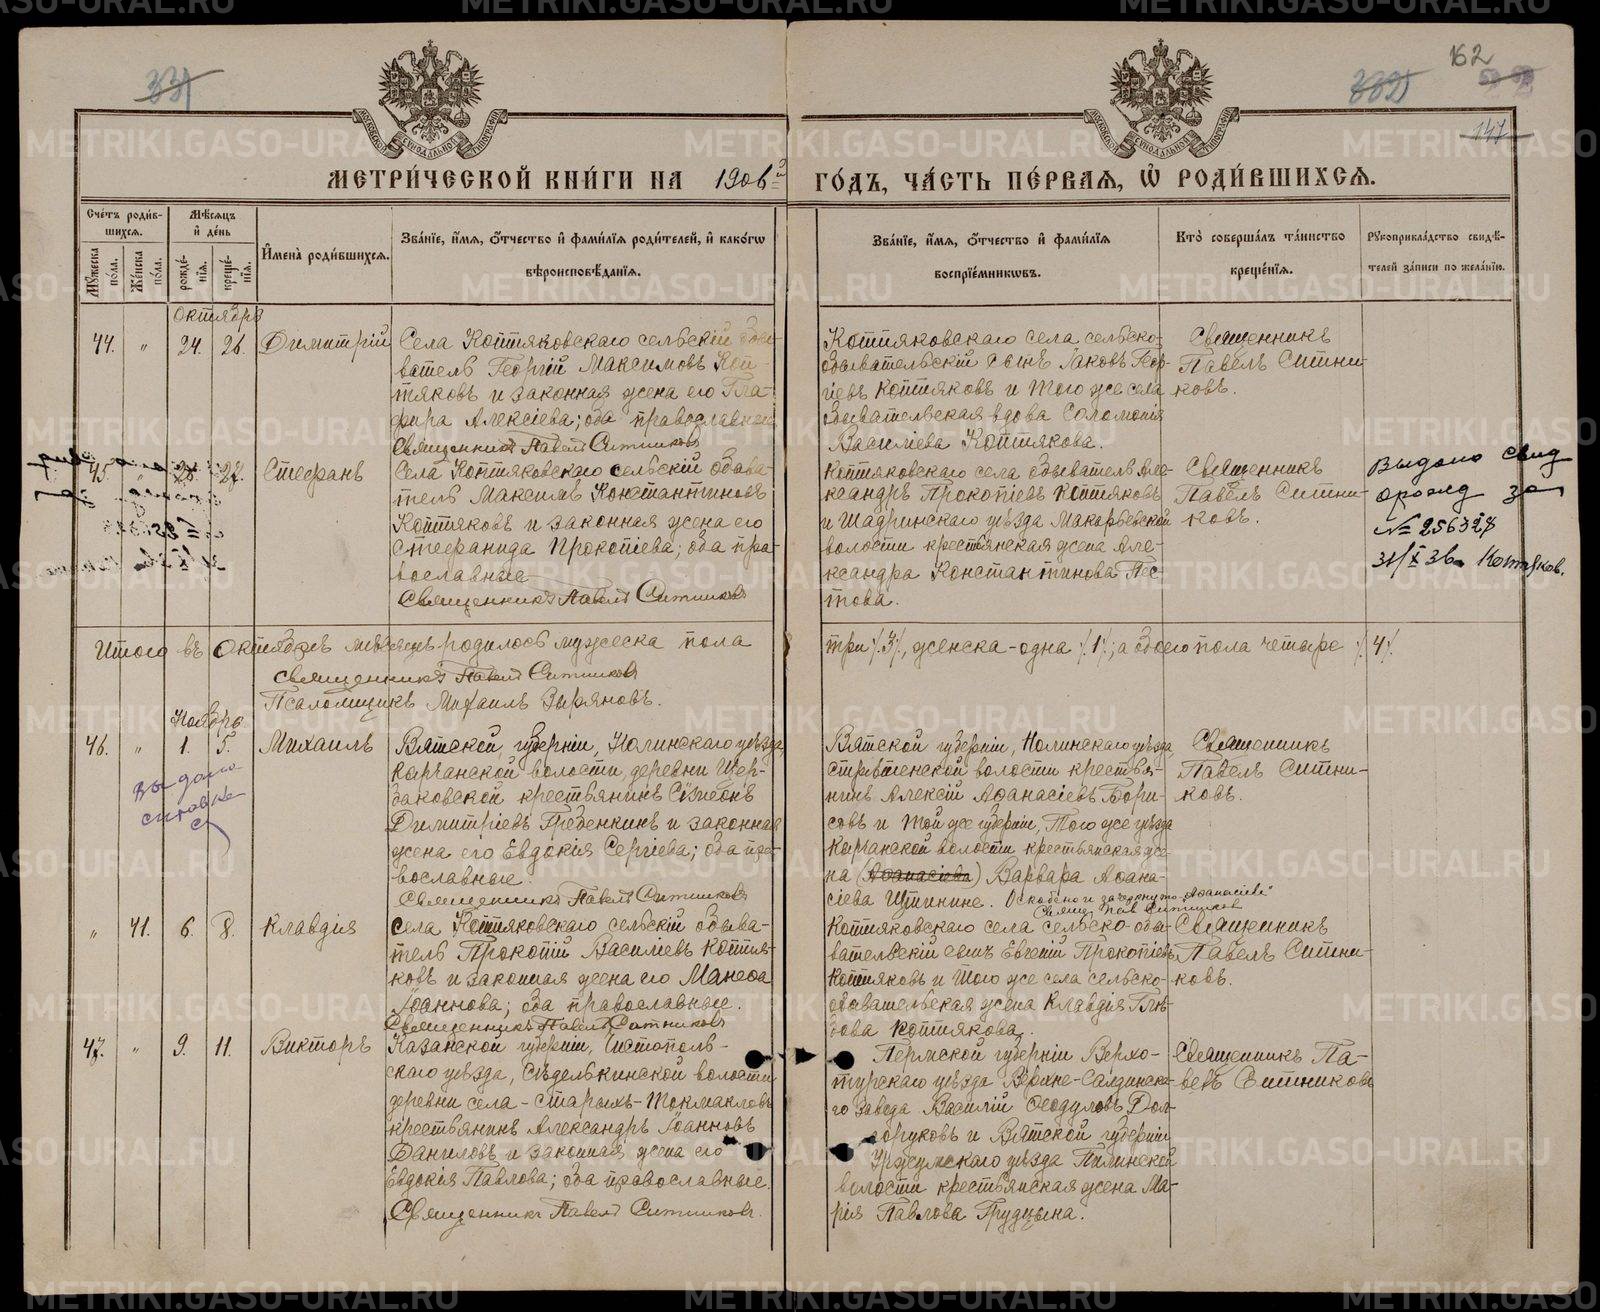 331
162
332
147
МЕТРИ́ЧЕСКОЙ КНИ́ГИ НА 1906й ГО́ДЪ, ЧА́СТЬ ПЕ́РВАЯ, Ѡ҆ РОДИ́ВШИХСЯ.
Сче́тъ роди́вшихся.
Мꙋ́жеска по́ла.
Же́нска по́ла.
Мѣ́сяцъ и҆ де́нь
рожде́нїѧ.
креще́нїѧ.
И҆мена̀ роди́вшихсѧ.
Зва́нїе, и҆́мѧ, ѻ҆́тчество и҆ фами́лїѧ роди́телей, и҆ како́гѡ вѣроисповѣ́данїѧ.
Зва́нїе, и҆́мѧ, ѻ҆́тчество и҆ фами́лїѧ воспрїе́мникѡвъ.
Кто̀ соверша́лъ та́инство креще́нїѧ.
Рꙋкоприкла́дство свидѣ́телей за́писи по жела́нїю.
Октябрь
44. " 24. 26. Димитрій
Села Коптяковскаго сельскій обы-
ватель Георгій Максимовъ Коп-
тяковъ и законная жена его Гла-
фира Алексіева; оба православные
Священникъ Павелъ Ситниковъ
Коптяковскаго села сельско-
обывательскій сынъ Іаковъ Геор-
гіевъ Коптяковъ и того же села
обывательская вдова Соломонія
Василіева Коптякова.
Священникъ
Павелъ Ситни-
ковъ.
45. " 25. 27. Стефанъ
Села Коптяковскаго сельскій обыва-
тель Максимъ Константиновъ
Коптяковъ и законная жена его
Стефанида Прокопіева; оба пра-
вославные
Священникъ Павелъ Ситниковъ
Коптяковскаго села обыватель Але-
ксандръ Прокопіевъ Коптяковъ
и Шадринскаго уѣзда Макарьевской
волости крестьянская жена Але-
ксандра Константинова Пес-
това.
Священникъ
Павелъ Ситни-
ковъ.
Выдано свид
о рожд за
№ 256328
31/X 36 Коптяков.
Итого въ Октябрѣ мѣсяцѣ родилось мужеска пола три /3/, женска - одна /1/; а обоего пола четыре /4/.
Священникъ Павелъ Ситниковъ
Псаломщикъ Михаилъ Зыряновъ.
Ноябрь
46. " 1. 5. Михаилъ
выдана
справка
Вятской губерніи, Нолинскаго уѣзда,
Кырчанской волости, деревни Щер-
баковской крестьянинъ Сѵмеонъ
Димитріевъ Гребенкинъ и законная
жена его Евдокія Сергіева; оба пра-
вославные.
Священникъ Павелъ Ситниковъ
Вятской губерніи, Нолинскаго уѣзда
волости крестья-
нинъ Алексій Аѳанасіевъ Бори-
совъ и той же губерніи, того же уѣзда
Кырчанской волости крестьянская же-
на (Аѳанасіева) Варвара Аѳана-
сіева Оскоблено и зачеркнуто „Аѳанасіева“
Свящ. Пав. Ситниковъ
Священникъ
Павелъ Ситни-
ковъ.
" 41. 6. 8. Клавдія
Села Коптяковскаго сельскій обыва-
тель Прокопій Василіевъ Коптя-
ковъ и законная жена его Манефа
Іоаннова; оба православные.
Священникъ Павелъ Ситниковъ
Коптяковскаго села сельско-обы-
вательскій сынъ Евгеній Прокопіевъ
Коптяковъ и того же села сельско-
обывательская жена Клавдія Глѣ-
бова Коптякова.
Священникъ
Павелъ Ситни-
ковъ.
47. " 9. 11. Викторъ
Казанской губерніи, Чистополь-
скаго уѣзда, Сѣделькинской волости
деревни села - Старыхъ-Токмакловъ
крестьянинъ Александръ Іоанновъ
Даниловъ и законная жена его
Евдокія Павлова; оба православные.
Священникъ Павелъ Ситниковъ.
Пермской губерніи Верхо-
турскаго уѣзда Верхне-Салдинска-
го завода Василій Ѳеодуловъ Дол-
горуковъ и Вятской губерніи
Уржумскаго уѣзда Пилинской
волости крестьянская жена Ма-
рія Павлова Грудцына.
Священникъ Па-
велъ Ситниковъ
METRIKI.GASO-URAL.RU